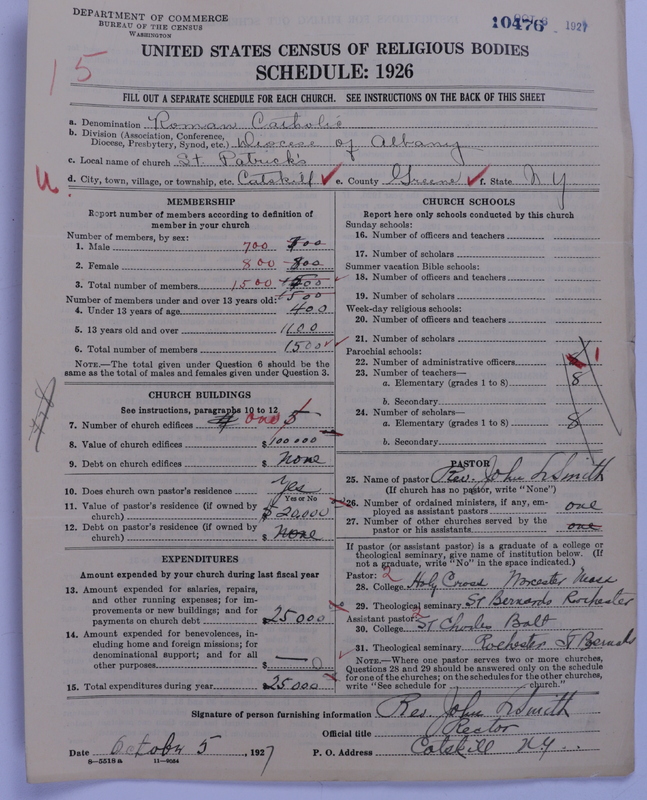 DEPARTMENT OF COMMERCE
BUREAU OF THE CENSUS
WASHINGTON
10476
1927
15
UNITED STATES CENSUS OF RELIGIOUS BODIES
SCHEDULE: 1926
FILL OUT A SEPARATE SCHEDULE FOR EACH CHURCH. SEE INSTRUCTIONS ON THE BACK OF THIS SHEET
a. Denomination Roman Catholic
b. Division (Association, Conference, Diocese, Presbytery, Synod, etc.) Diocese of Albany
c. Local name of church St. Patrick's
d. City, town, village, or township, etc. Catskill e. County Greene f. State NY
MEMBERSHIP
Report number of members according to definition of
member in your church
Number of members, by sex:
1. Male 700
2. Female 800
3. Total number of members 1500
Number of members under and over 13 years old:
4. Under 13 years of age 400
5. 13 years old and over 1100
6. Total number of members 1500
NOTE.—The total given under Question 6 should be
same as the total of males and females given under Question 3.
CHURCH BUILDINGS
See instructions, paragraphs 10 to 12
7. Number of church edifices one 5
8. Value of church edifices $100000
9. Debt on church edifices $ None
10. Does church own pastor's residence Yes
Yes or No
11. Value of pastor's residence (if owned by
church) $20,000
12. Debt on pastor's residence (if owned by
church) $ None
EXPENDITURES
Amount expended by your church during last fiscal year
13. Amount expended for salaries, repairs,
and other running expenses; for im-
provements or new buildings; and for
payments on church debt $25000
14. Amount expended for benevolences,
including home and foreign missions; for
denominational support; and for all
other purposes $ — 0
15. Total expenditures during year $25000
CHURCH SCHOOLS
Report here only schools conducted by this church
Sunday schools:
16. Number of officers and teachers
17. Number of scholars
Summer vacation Bible schools:
18. Number of officers and teachers
19. Number of scholars
Week-day religious schools:
20. Number of officers and teachers
21. Number of scholars
Parochial schools:
22. Number of administrative officers 1
23. Number of teachers—
a. Elementary (grades 1 to 8) 8
b. Secondary
24. Number of scholars—
a. Elementary (grades 1 to 8) 8
b. Secondary
PASTOR
25. Name of pastor Rev. John L Smith
(If church has no pastor, write "None")
26. Number of ordained ministers, if any, em-
ployed as assistant pastors one
27. Number of other churches served by the
pastor or his assistants one
If pastor (or assistant pastor) is a graduate of a college or
theological seminary, give name of institution below. (If
not a graduate, write "No" in the space indicated.)
Pastor: 2
28. College Holy Cross Worcester Mass
29. Theological seminary St Bernards Rochester
Assistant pastor: 2
30. College St Charles Balt
31. Theological seminary Rochester St Bernards
NOTE.—Where one pastor serves two or more churches,
Questions 28 and 29 should be answered only on the schedule
for one of the churches; on the schedules for the other churches,
write "See schedule for church."
Signature of person furnishing information Rev. John L Smith
Official title Rector
Date October 5, 1927 P. O. Address Catskill NY
8—5518a 11—9054